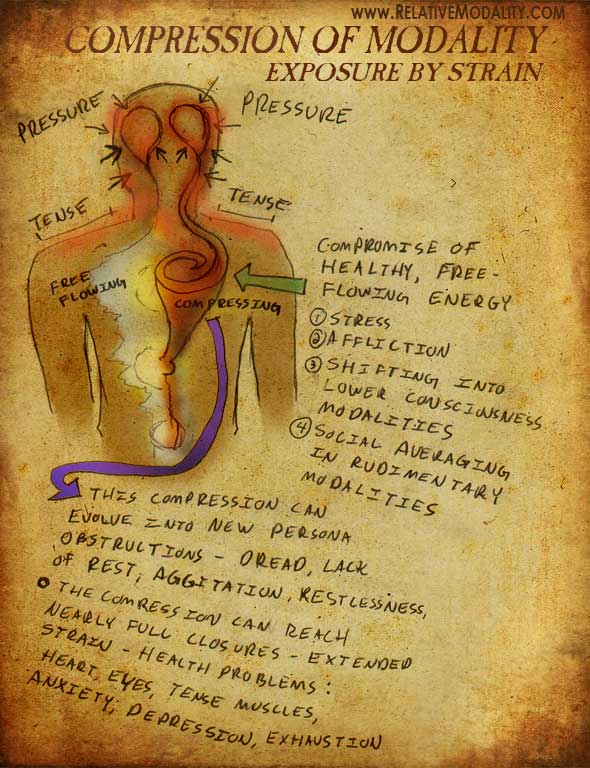 www.RelativeModality.com
COMPRESSION OF MODALITY
EXPOSURE BY STRAIN
PRESSURE
PRESSURE
TENSE
TENSE
FREE
FLOWING
COMPRESSING
COMPROMISE OF
HEALTHY, FREE-
FLOWING ENERGY
① STRESS
② AFFLICTION
③ SHIFTING INTO
LOWER CONSCIOUSNESS
MODALITIES
④ SOCIAL AVERAGING
IN RUDIMENTARY
MODALITIES
THIS COMPRESSION CAN
EVOLVE INTO NEW PERSONA
OBSTRUCTIONS - DREAD, LACK
OF REST, AGGITATION, RESTLESSNESS,
• THE COMPRESSION CAN REACH
NEARLY FULL CLOSURES - EXTENDED
STRAIN - HEALTH PROBLEMS:
HEART, EYES, TENSE MUSCLES,
ANXIETY, DEPRESSION, EXHAUSTION